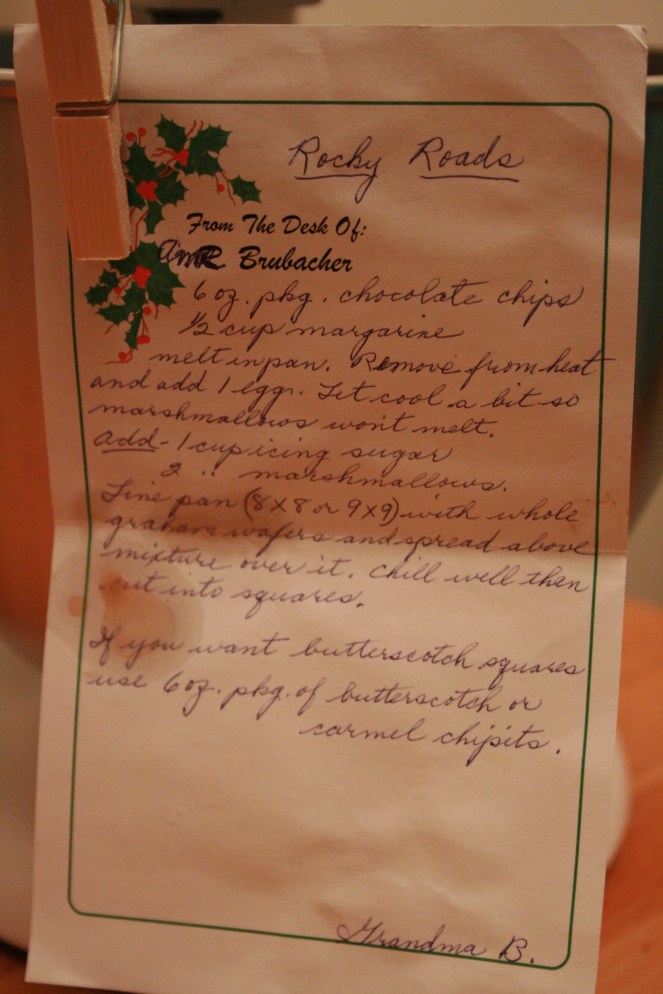 Rocky Roads
From The Desk Of:
Brubacher
6 oz. pkg. chocolate chips
½ cup margarine
melt in pan. Remove from heat
and add 1 egg. Let cool a bit so
marshmallows won't melt.
Add - 1 cup icing sugar
2 " marshmallows.
Line pan (8X8 or 9X9) with whole
graham wafers and spread above
mixture over it. Chill well then
cut into squares.
If you want butterscotch squares
use 6 oz. pkg. of butterscotch or
carmel chipits.
Grandma B.